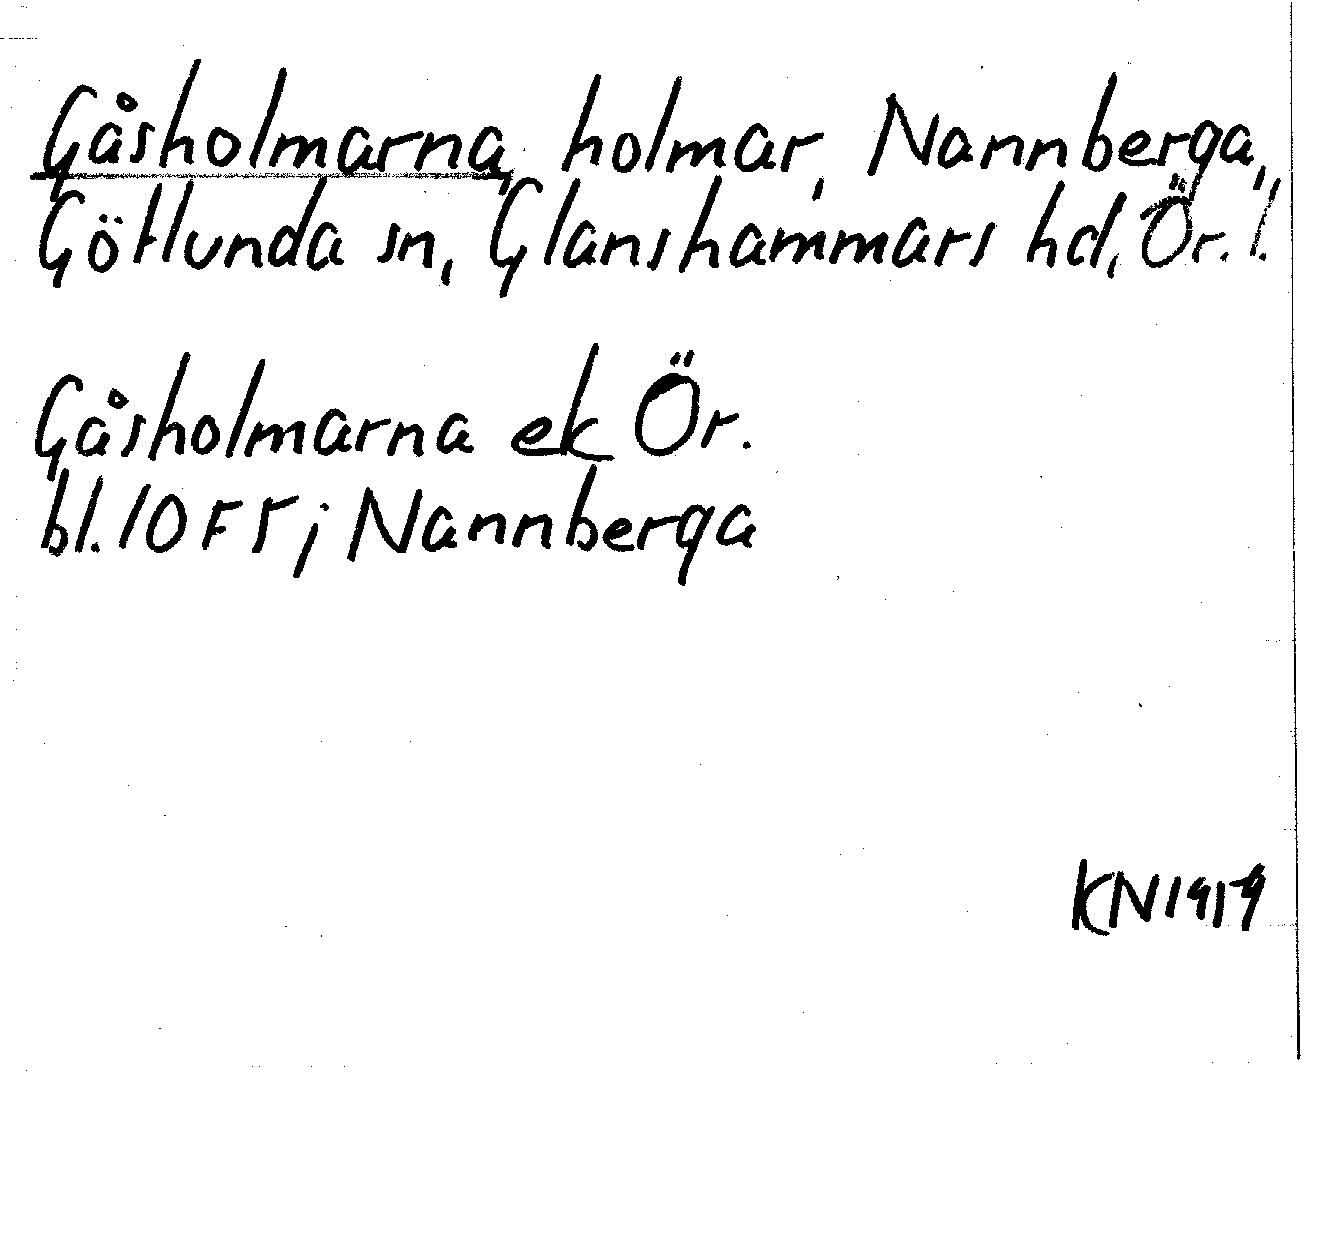 Gåsholmarna, holmar, Nannberga,
Götlunda sn, Glanshammars hd, Ör. l.
Gåsholmarna ek Ör.
bl. 10 F 5; Nannberga
KN 1919